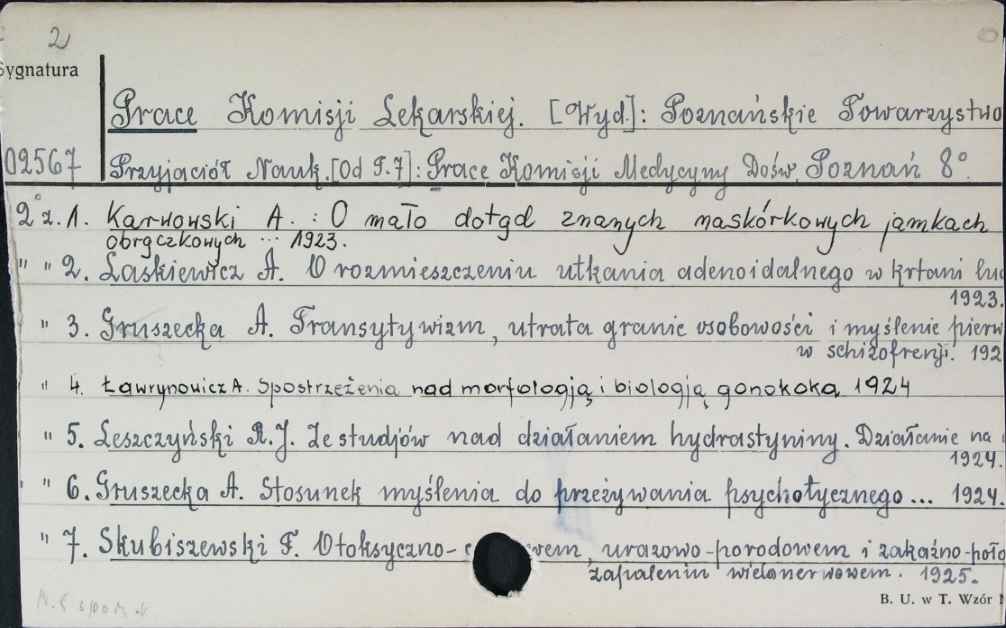 2
Sygnatura
Prace Komisji Lekarskiej. [Wyd.]: Poznańskie Towarzystwo
02567 Przyjaciół Nauk. [Od T.7]: Prace Komisji Medycyny Dośw. Poznań 8°.
2°z. 1. Karwowski A. : O mało dotąd znanych naskórkowych jamkach
obrączkowych ... 1923.
" " 2. Laskiewicz A. O rozmieszczeniu utkania adenoidalnego w krtani
1923.
" 3. Gruszecka A. Transytywizm, utrata granic osobowości i myślenie
w schizofrenji. 192
" 4. Ławrynowicz A. Spostrzeżenia nad morfologją i biologją gonokoka 1924
" 5. Leszczyński R.J. Ze studjów nad działaniem hydrastyniny. Działanie na
1924.
" " 6. Gruszecka A. Stosunek myślenia do przeżywania psychotycznego ... 1924.
" 7. Skubiszewski F. O toksyczno- urazowo-porodowem i zakaźno-
zapaleniu wielonerwowem. 1925.
B. U. w T. Wzór